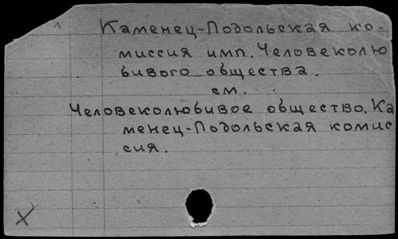 Каменец-Подольская ко-
миссия имп. Человеколю
бивого общества.
см.
Человеколюбивое общество. Ка
менец-Подольская комис
сия.